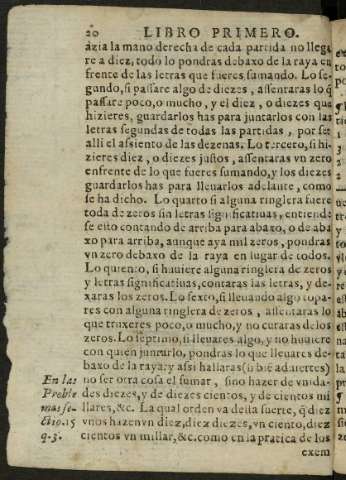 20 LIBRO PRIMERO.
azia la mano derecha de cada partida no llega
re a diez, todo lo pondras debaxo de la raya en
frente de las letras que fueres sumando. Lo se-
gundo, si passare algo de diezes, assentaras lo q̃
passare poco, o mucho, y el diez, o diezes que
hizieres, guardarlos has para juntarlos con las
letras segundas de todas las partidas, por ser
alli el assiento de las dezenas. Lo tercero, si hi-
zieres diez, o diezes justos, assentaras vn zero
enfrente de lo que fueres sumando, y los diezes
guardarlos has para lleuarlos adelante, como
se ha dicho. Lo quarto si alguna ringlera fuere
toda de zeros sin letras significatiuas, entiende
se esto contando de arriba para abaxo, o de aba
xo para arriba, aunque aya mil zeros, pondras
vn zero debaxo de la raya en lugar de todos.
Lo quiento, si huuiere alguna ringlera de zeros
y letras significatiuas, contaras las letras, y de-
xaras los zeros. Lo sexto, si lleuando algo topa-
res con alguna ringlera de zeros, assentaras lo
que truxeres poco, o mucho, y no curaras de los
zeros. Lo septimo, si lleuares algo, y no huuiere
con quien juntarlo, pondras lo que lleuares de-
baxo de la raya: y assi hallaras (si biẽ aduiertes)
En las no ser otra cosa el sumar, sino hazer de vnida-
Proble des diezes, y de diezes cientos, y de cientos mi
mas se- llares, &c. La qual orden va desta suerte, q̃ diez
ctio. 15 vnos hazen vn diez, diez diezes, vn ciento, diez
q. 3. cientos vn millar, &c. como en la pratica de los
exem